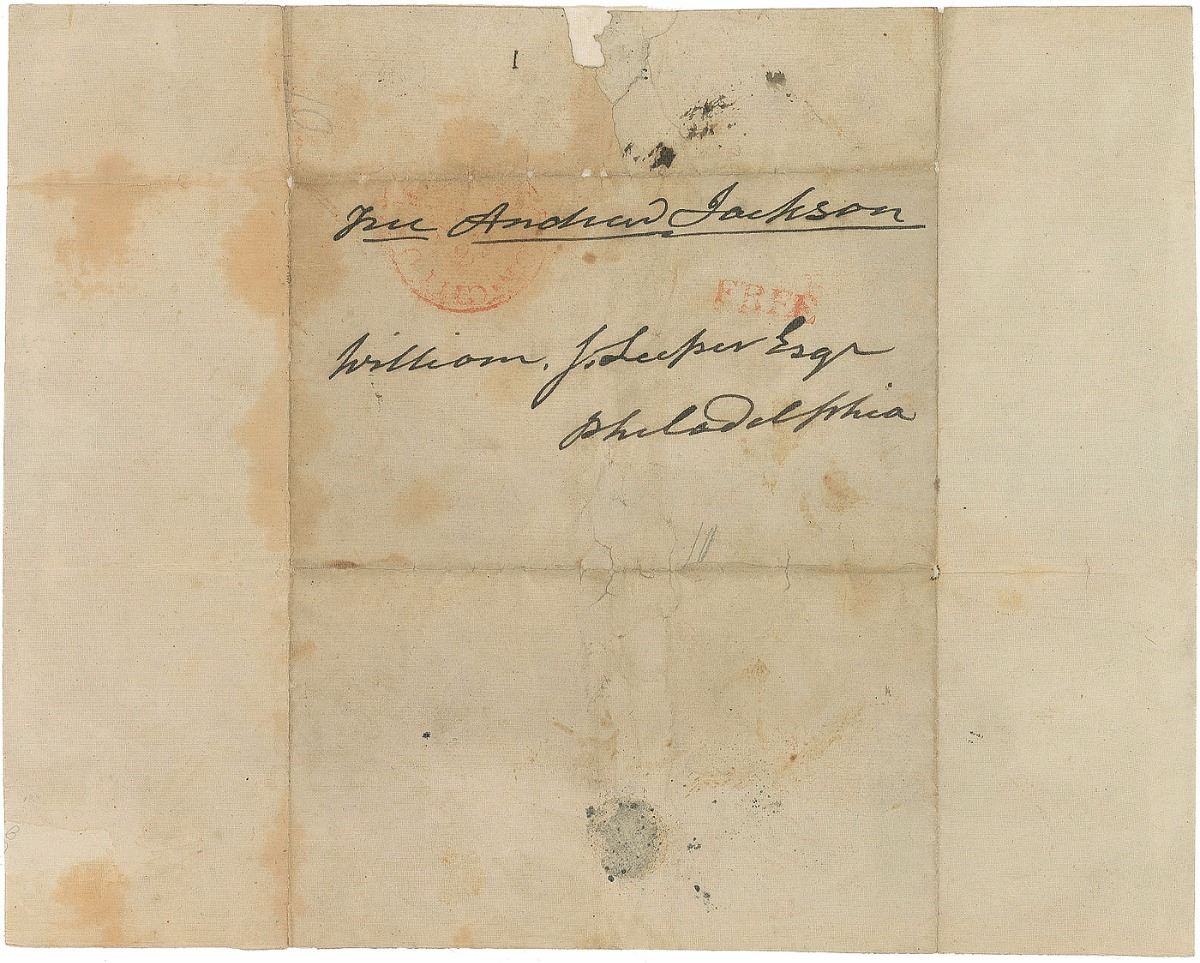 Free Andrew Jackson
FREE
William. J. Leeper Esqr
Philadelphia